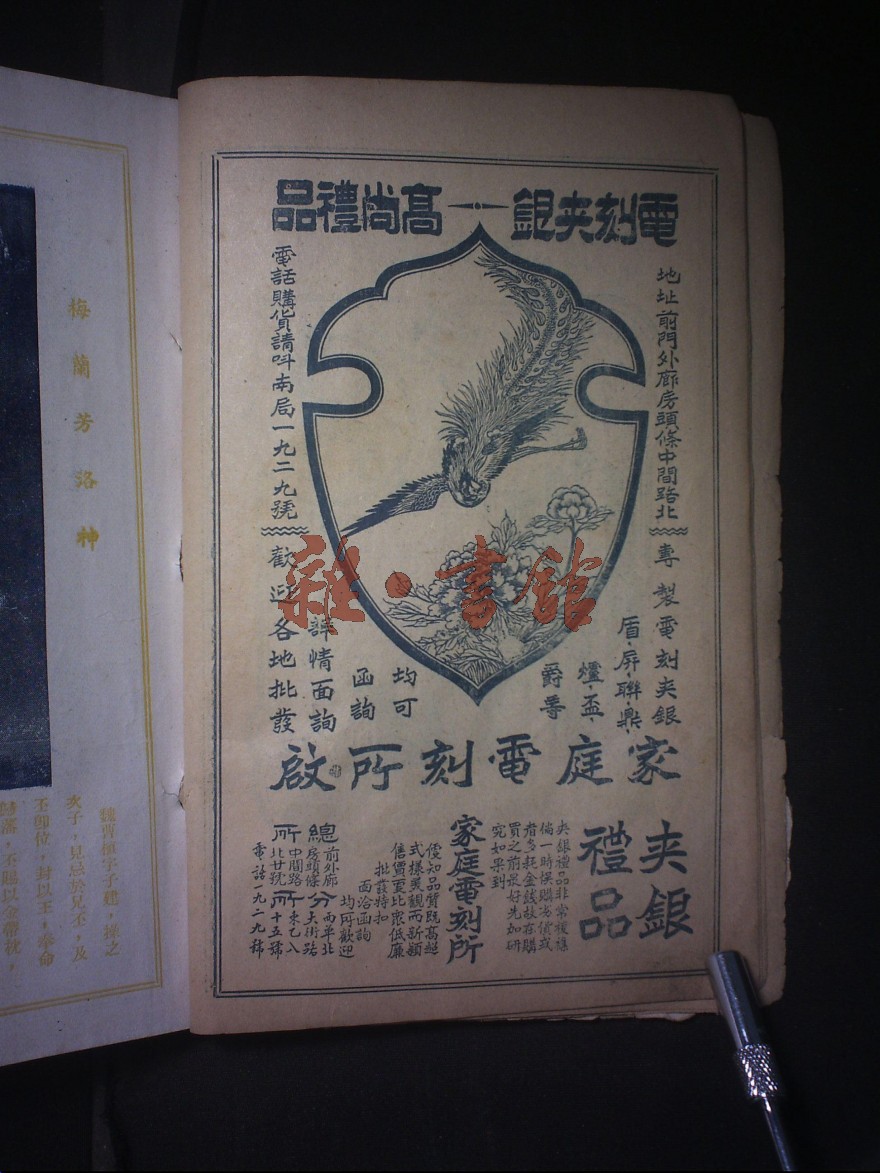 電刻夹銀一高尚禮品
地址前門外廊房頭條中間路北
專製電刻夹銀
盾·屏·聯·鼎·
爐·盃·
爵等
均可
函詢
詳情面詢
電話購貨請呌南局一九二九號
歡迎各地批發
家庭電刻所啟
夹銀
禮品
夹銀禮品非常複雜
倘一時悞購
者多耗金錢故在購
買之前最好先加研
究如果到
家庭電刻所
便知品質既高超
式樣美觀而新頴
售價更比衆低廉
批發特扣
面洽函詢
均所歡迎
總所
前外廊
房頭條
中間路
北廿號
分所
西單北
大街路
東乙八
十五號
電話一九二九號
雜·書館
梅蘭芳洛神
魏曹植字子建，操之
次子，見忌於兄丕，及
丕卽位，封以王，奉命
歸藩，不賜以金帶枕，